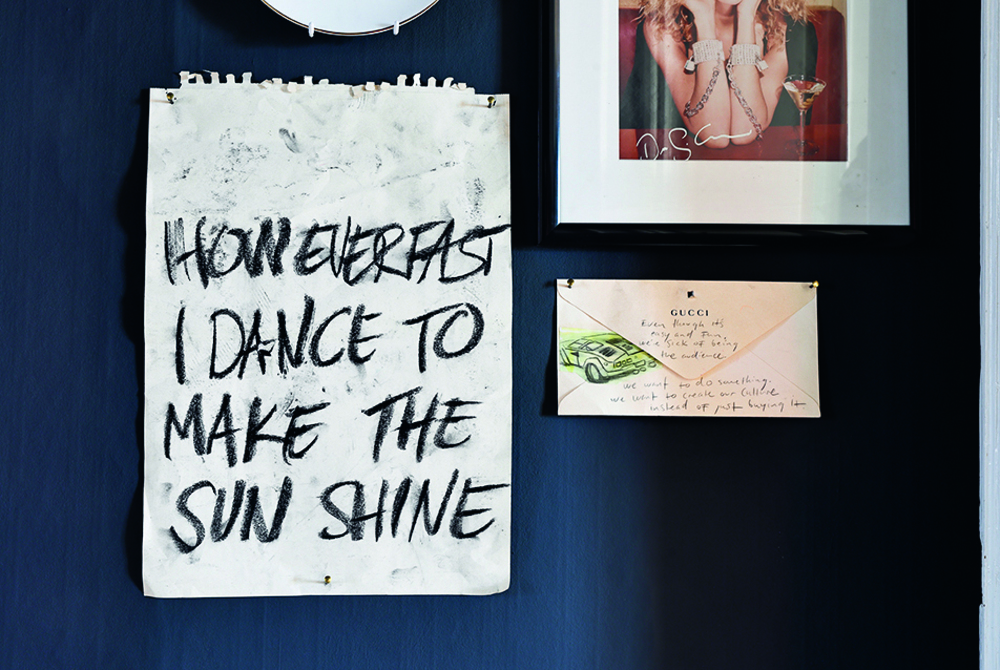 HOWEVER FAST
I DANCE TO
MAKE THE
SUN SHINE
GUCCI
Even though its
easy and fun
we're sick of being
the audience
we want to do something.
we want to create our culture
instead of just buying it